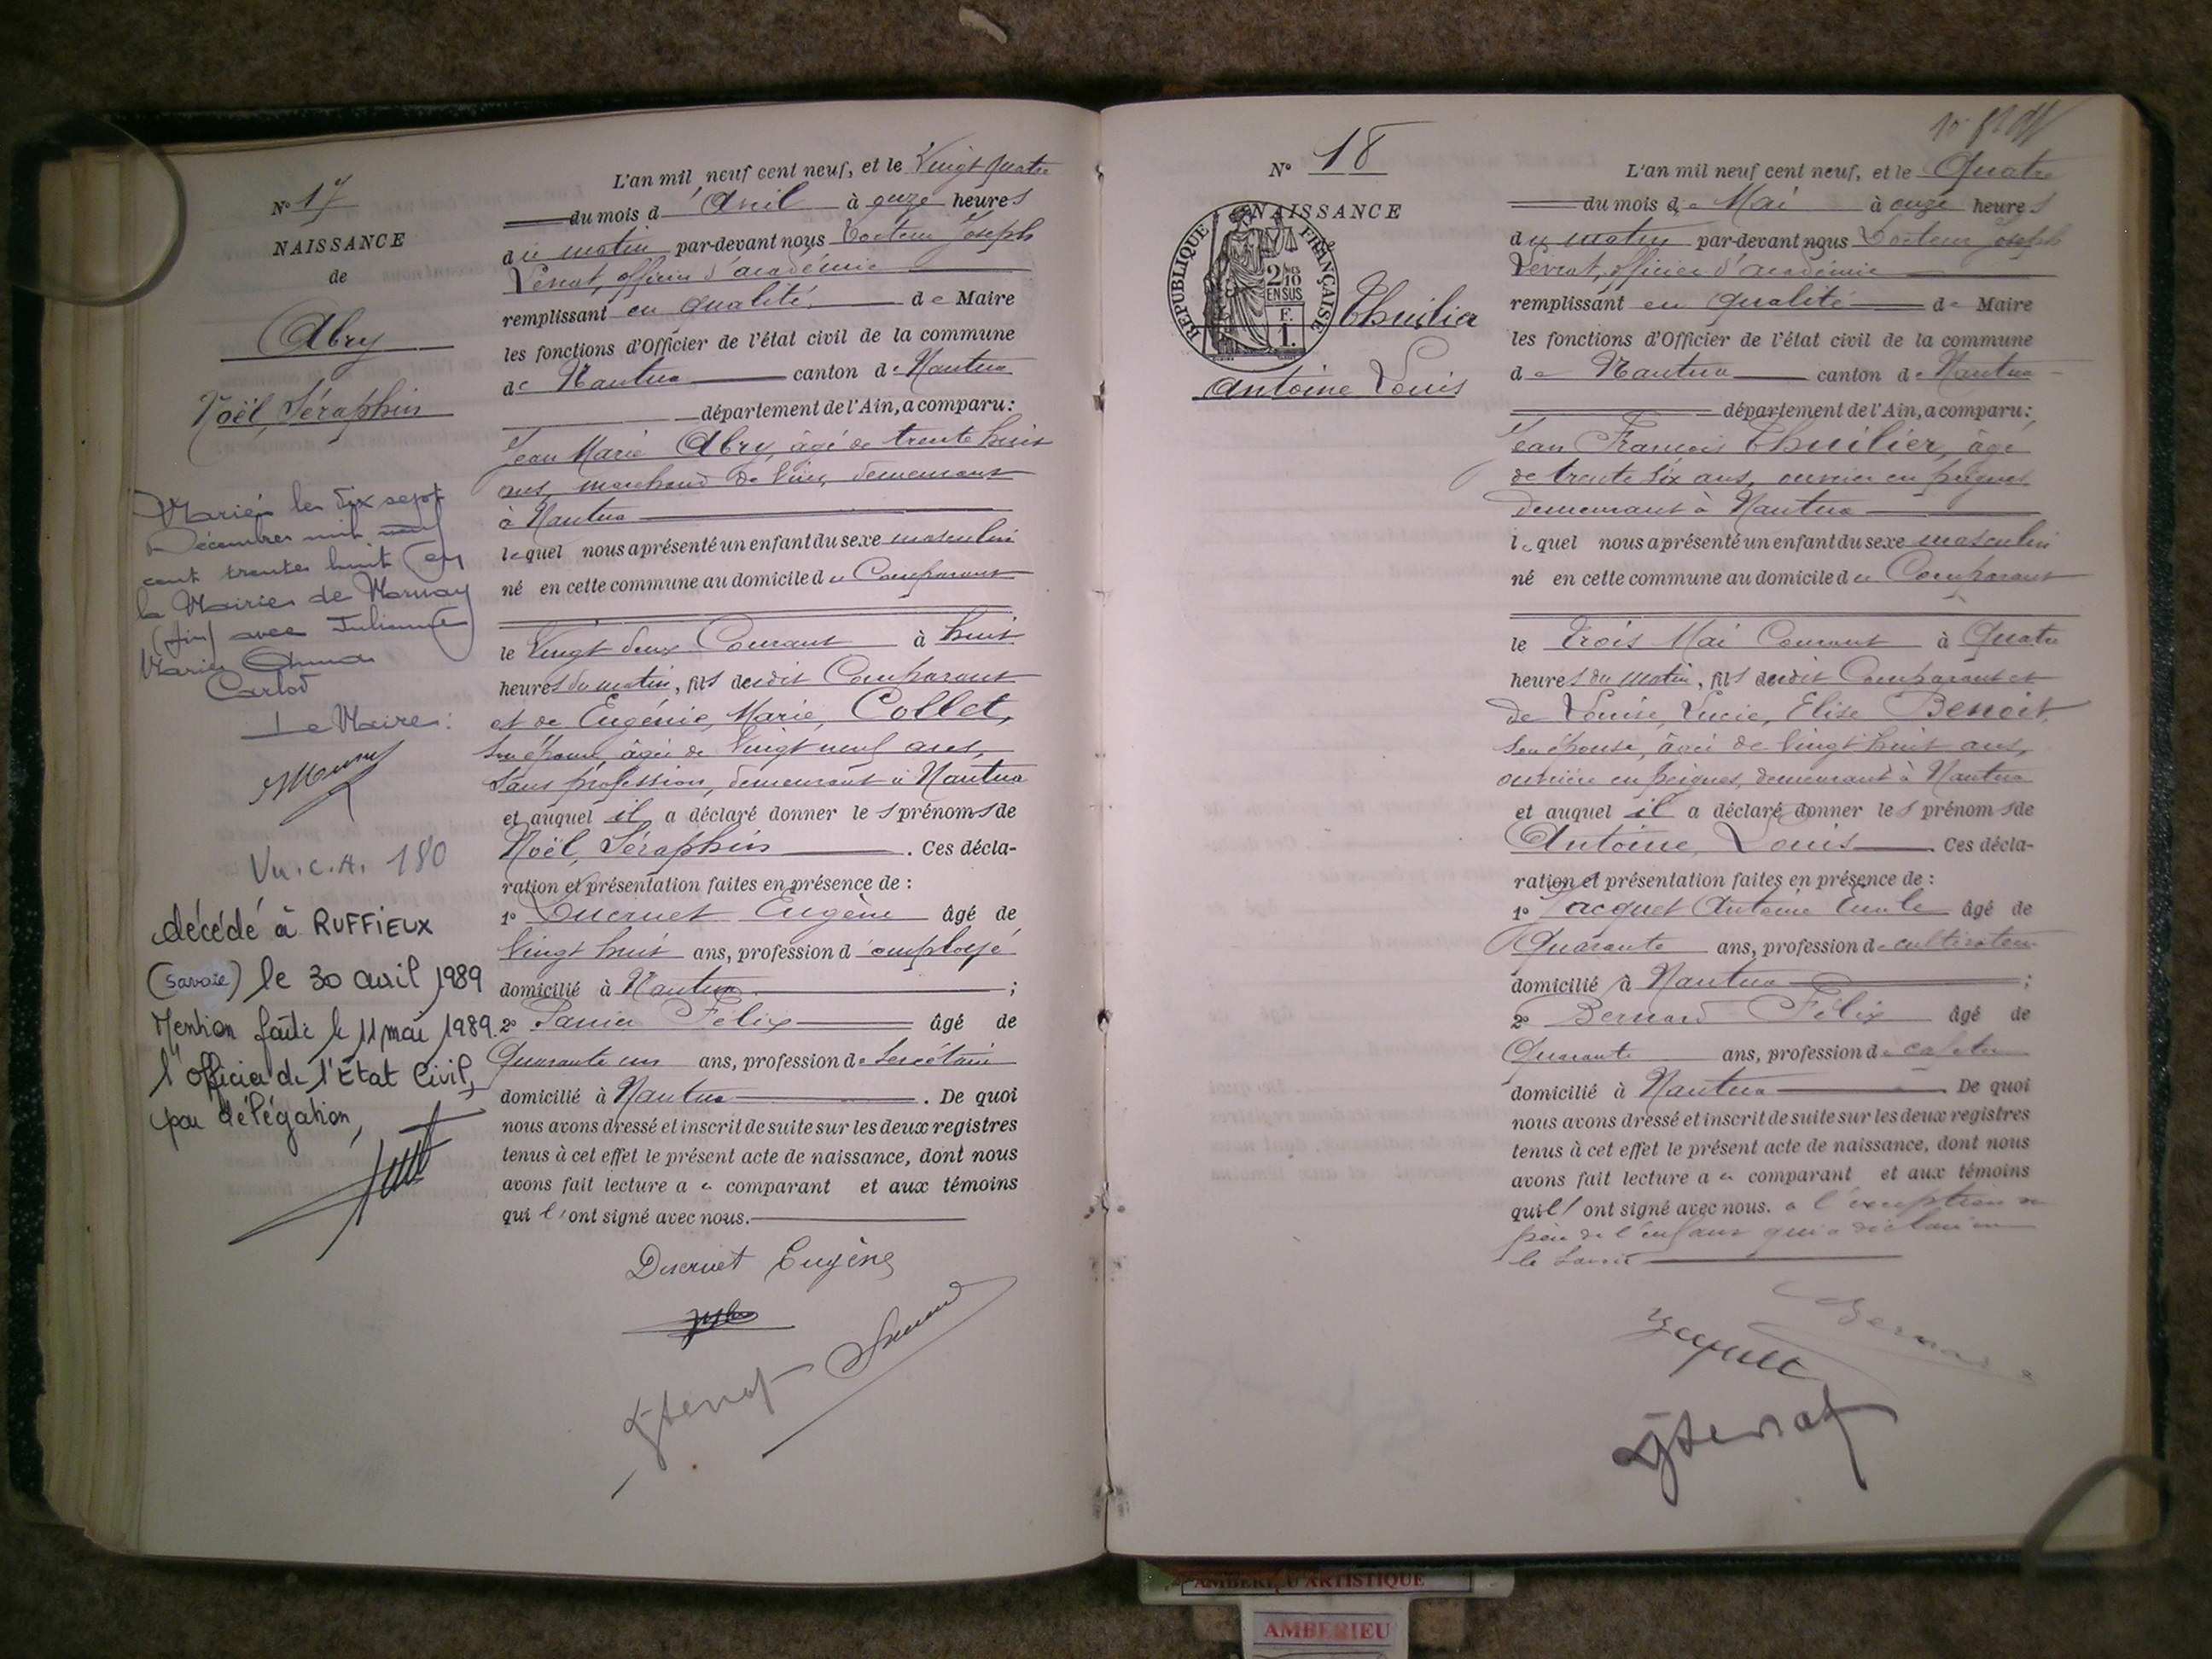 N° 17
NAISSANCE
de
Abry
Noël, Séraphin
Marié le dix sept
Décembre mil neuf
cent trente huit en
la Mairie de Mornay
(Ain) avec Julienne
Marie
Carlod
Le Maire :
Vu. C.A. 180
décédé à RUFFIEUX
(Savoie) le 30 avril 1989
Mention faite le 11 mai 1989.
l'officier de l'Etat Civil,
par délégation,
L'an mil neuf cent neuf, et le Vingt quatre
du mois d'Avril à onze heures
du matin par-devant nous Docteur Joseph
Levrat, officier d'académie
remplissant en qualité de Maire
les fonctions d'Officier de l'état civil de la commune
de Nantua canton de Nantua
département de l'Ain, a comparu :
Jean Marie Abry, âgé de trente huit
ans, marchand de vins, demeurant
à Nantua
lequel nous a présenté un enfant du sexe masculin
né en cette commune au domicile du Comparant
le Vingt deux Courant à huit
heures du matin, fils dudit Comparant
et de Eugénie, Marie, Collet,
son épouse, âgée de Vingt neuf ans,
sans profession, demeurant à Nantua
et auquel il a déclaré donner les prénoms de
Noël, Séraphin . Ces décla-
ration et présentation faites en présence de :
1° Ducruet Eugène âgé de
Vingt huit ans, profession d'employé
domicilié à Nantua ;
2° Félix âgé de
Quarante un ans, profession de Secrétaire
domicilié à Nantua . De quoi
nous avons dressé et inscrit de suite sur les deux registres
tenus à cet effet le présent acte de naissance, dont nous
avons fait lecture au comparant et aux témoins
qui l'ont signé avec nous.
Ducruet Eugène
N° 18
NAISSANCE
RÉPUBLIQUE FRANÇAISE
2/10 EN SUS
F. 1.
Thuilier
Antoine Louis
L'an mil neuf cent neuf, et le Quatre
du mois de Mai à onze heures
du matin par-devant nous Docteur Joseph
Levrat, officier d'académie
remplissant en qualité de Maire
les fonctions d'Officier de l'état civil de la commune
de Nantua canton de Nantua
département de l'Ain, a comparu :
Jean François Thuilier, âgé
de trente six ans, ouvrier en peignes
demeurant à Nantua
lequel nous a présenté un enfant du sexe masculin
né en cette commune au domicile du Comparant
le Trois Mai Courant à Quatre
heures du matin, fils dudit Comparant et
de Louise, Lucie, Elise Benoit,
son épouse, âgée de Vingt huit ans,
ouvrière en peignes, demeurant à Nantua
et auquel il a déclaré donner les prénoms de
Antoine, Louis . Ces décla-
ration et présentation faites en présence de :
1° Jacquet Antoine Emile âgé de
Quarante ans, profession de cultivateur
domicilié à Nantua ;
2° Bernard Félix âgé de
Quarante ans, profession de cafetier
domicilié à Nantua . De quoi
nous avons dressé et inscrit de suite sur les deux registres
tenus à cet effet le présent acte de naissance, dont nous
avons fait lecture au comparant et aux témoins
qui l'ont signé avec nous. à l'exception du
père de l'enfant qui a déclaré ne
le savoir
Jacquet
Bernard
AMBERIEU ARTISTIQUE
AMBERIEU